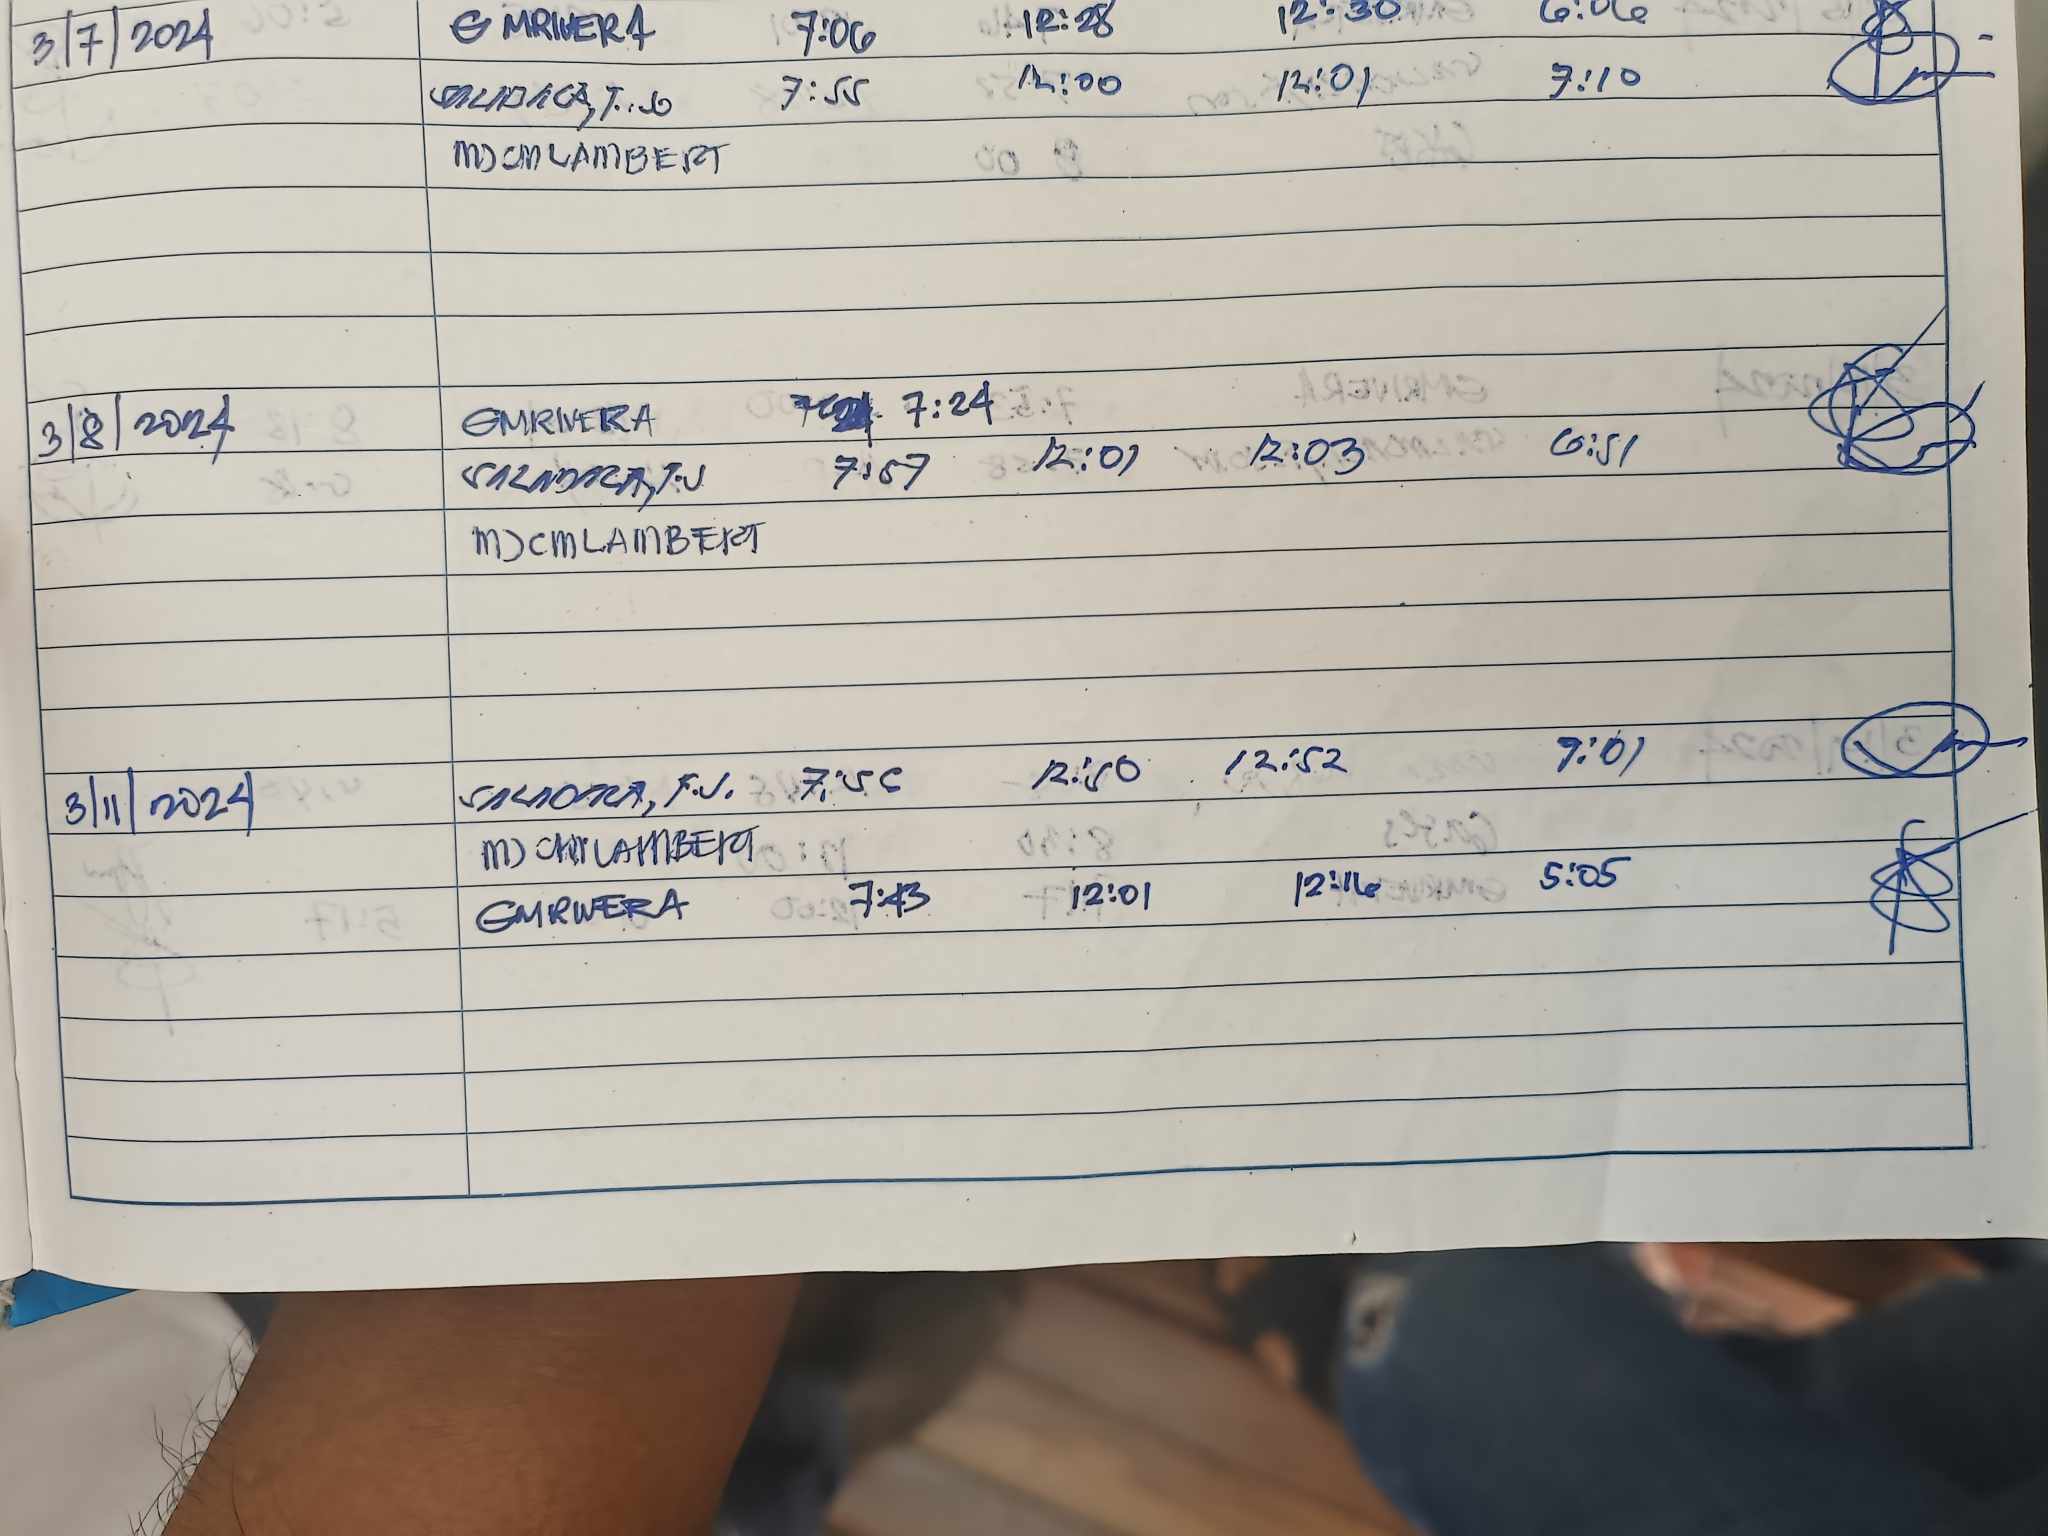 3/7/2024 GMRIVERA 7:06 12:28 12:30 6:06
7:55 12:00 12:01 7:10
MJCMLAMBERT
3/8/2024 GMRIVERA 7:24
7:57 12:01 12:03 6:51
MJCMLAMBERT
3/11/2024 7:56 12:50 12:52 7:01
MJCMLAMBERT
GMRIVERA 7:43 12:01 12:16 5:05